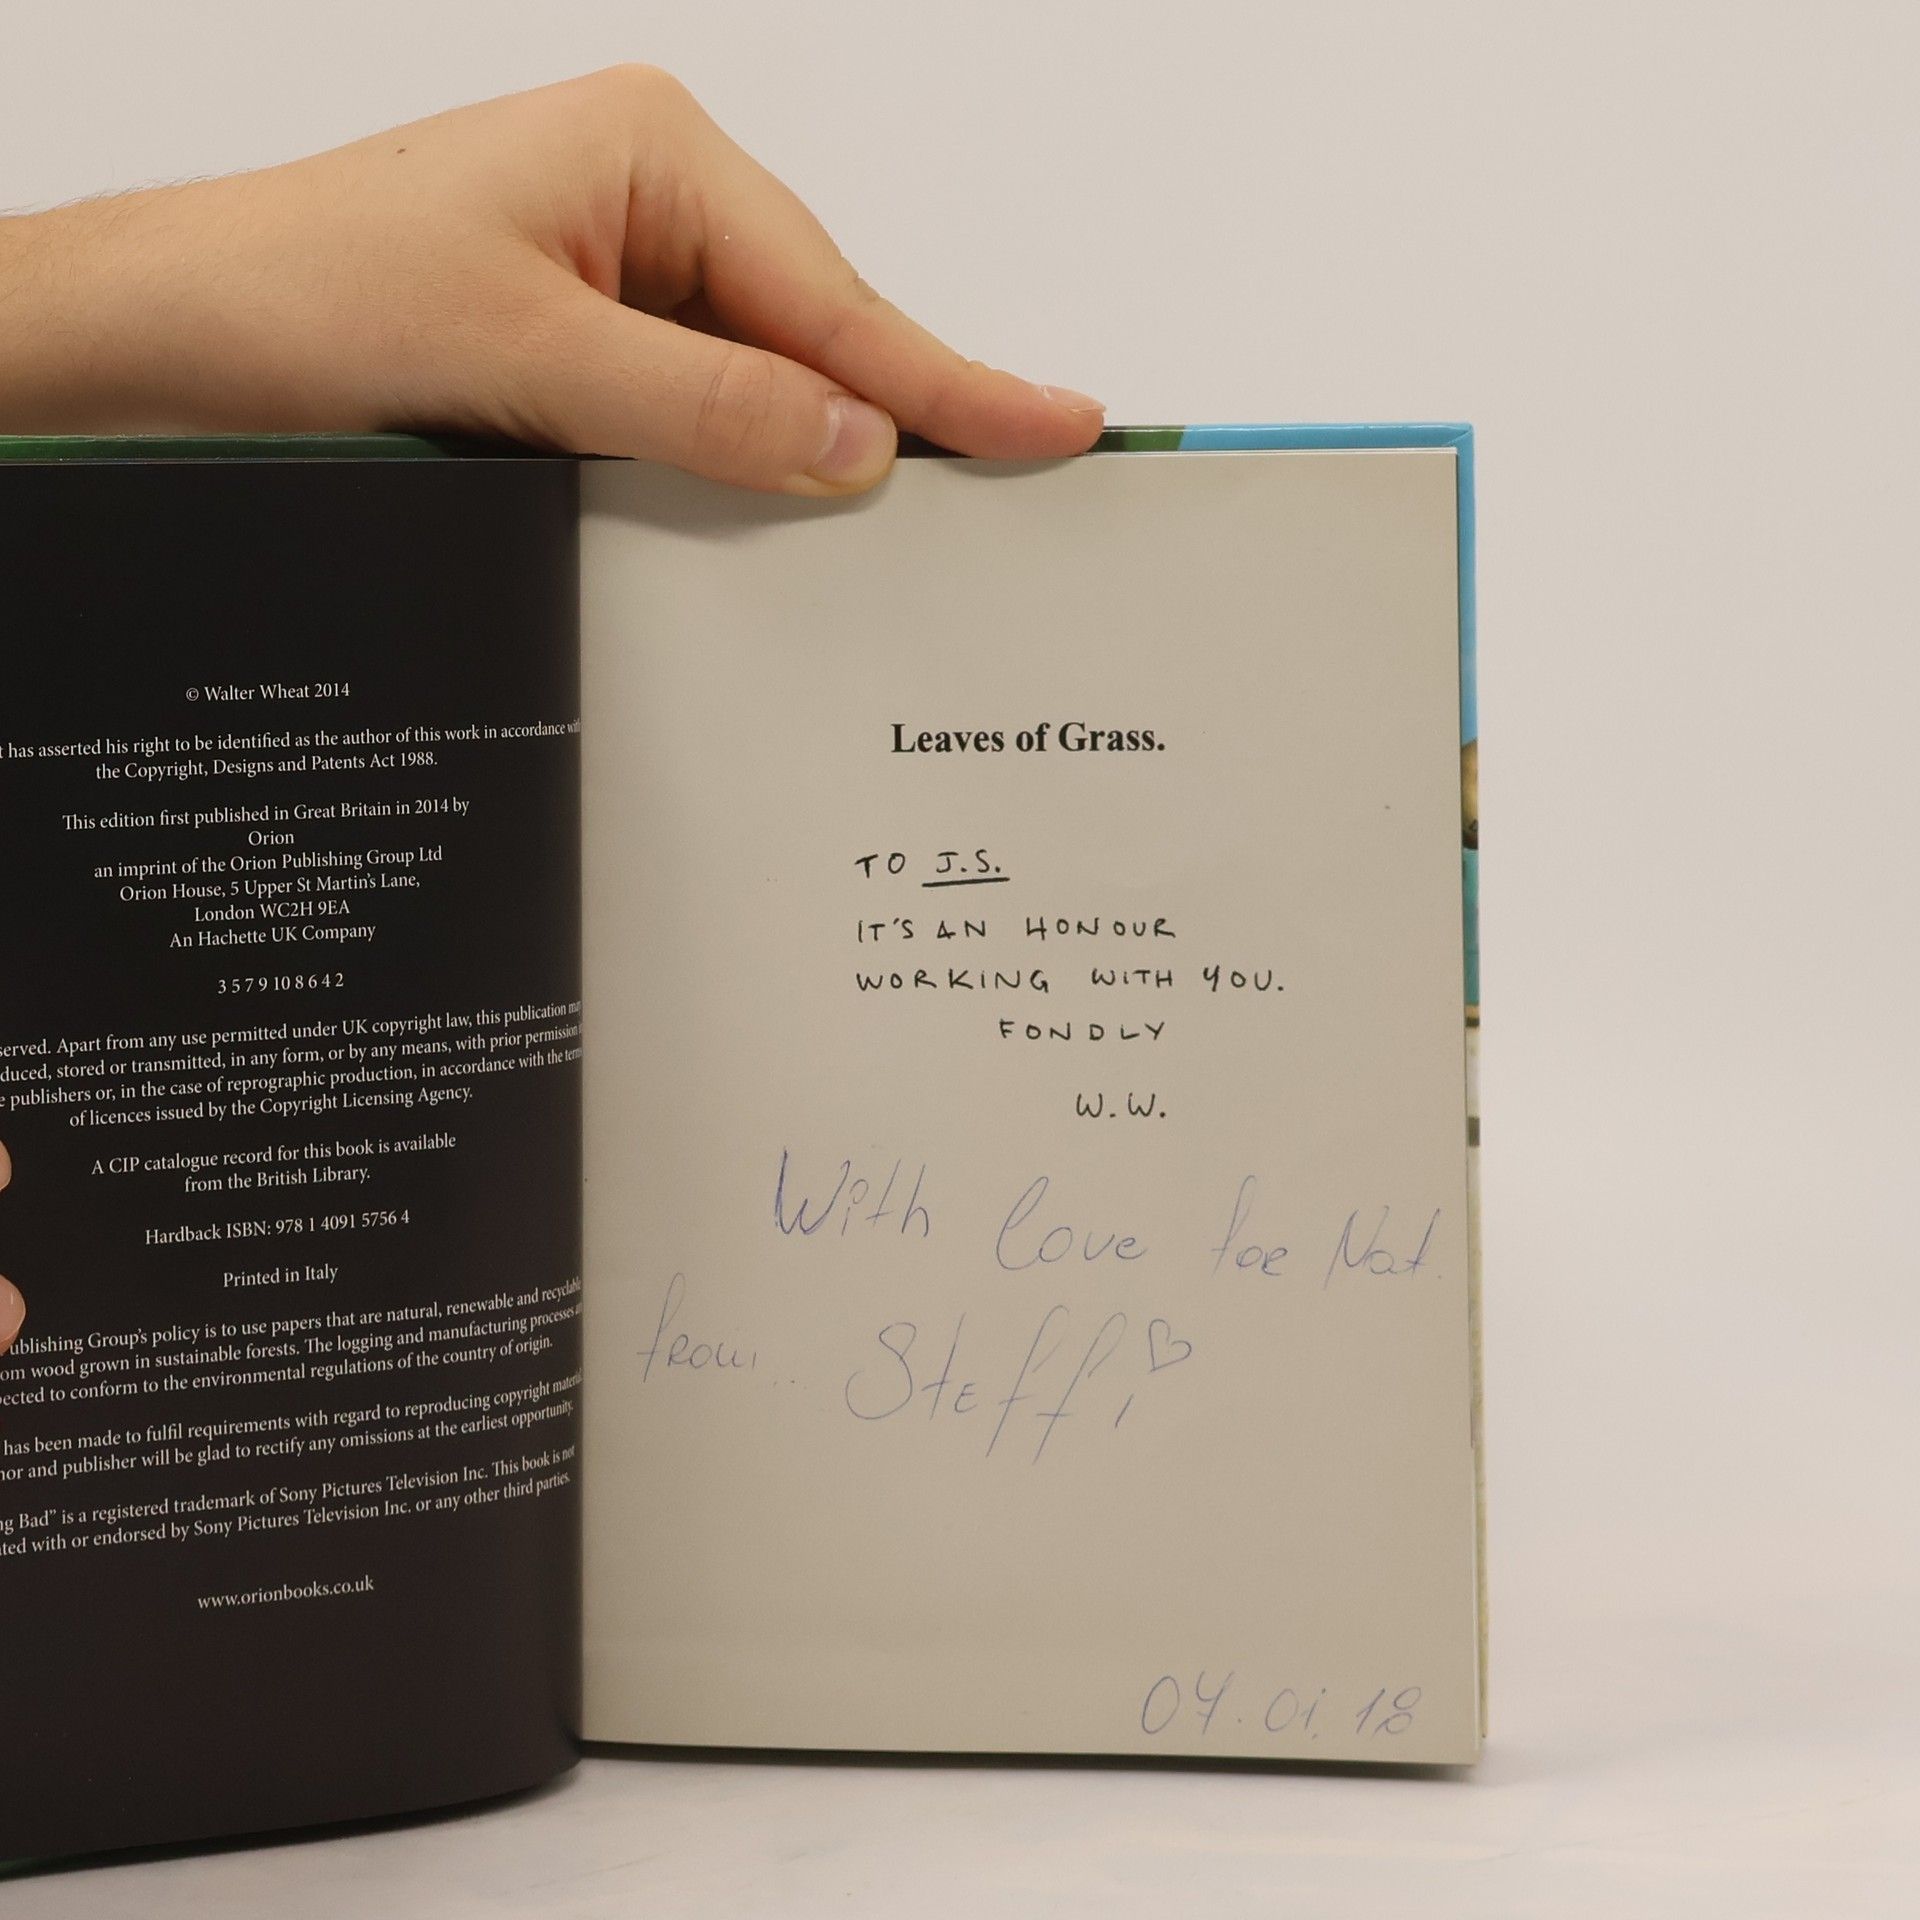 © Walter Wheat 2014
t has asserted his right to be identified as the author of this work in accordance with
the Copyright, Designs and Patents Act 1988.
This edition first published in Great Britain in 2014 by
Orion
an imprint of the Orion Publishing Group Ltd
Orion House, 5 Upper St Martin's Lane,
London WC2H 9EA
An Hachette UK Company
3 5 7 9 10 8 6 4 2
served. Apart from any use permitted under UK copyright law, this publication may
duced, stored or transmitted, in any form, or by any means, with prior permission
e publishers or, in the case of reprographic production, in accordance with the terms
of licences issued by the Copyright Licensing Agency.
A CIP catalogue record for this book is available
from the British Library.
Hardback ISBN: 978 1 4091 5756 4
Printed in Italy
ublishing Group's policy is to use papers that are natural, renewable and recyclable
om wood grown in sustainable forests. The logging and manufacturing processes
pected to conform to the environmental regulations of the country of origin.
has been made to fulfil requirements with regard to reproducing copyright material
hor and publisher will be glad to rectify any omissions at the earliest opportunity.
ng Bad" is a registered trademark of Sony Pictures Television Inc. This book is not
ated with or endorsed by Sony Pictures Television Inc. or any other third parties.
www.orionbooks.co.uk
Leaves of Grass.
TO J.S.
IT'S AN HONOUR
WORKING WITH YOU.
FONDLY
W.W.
With love for Nat.
from... Steffi
04.01.18